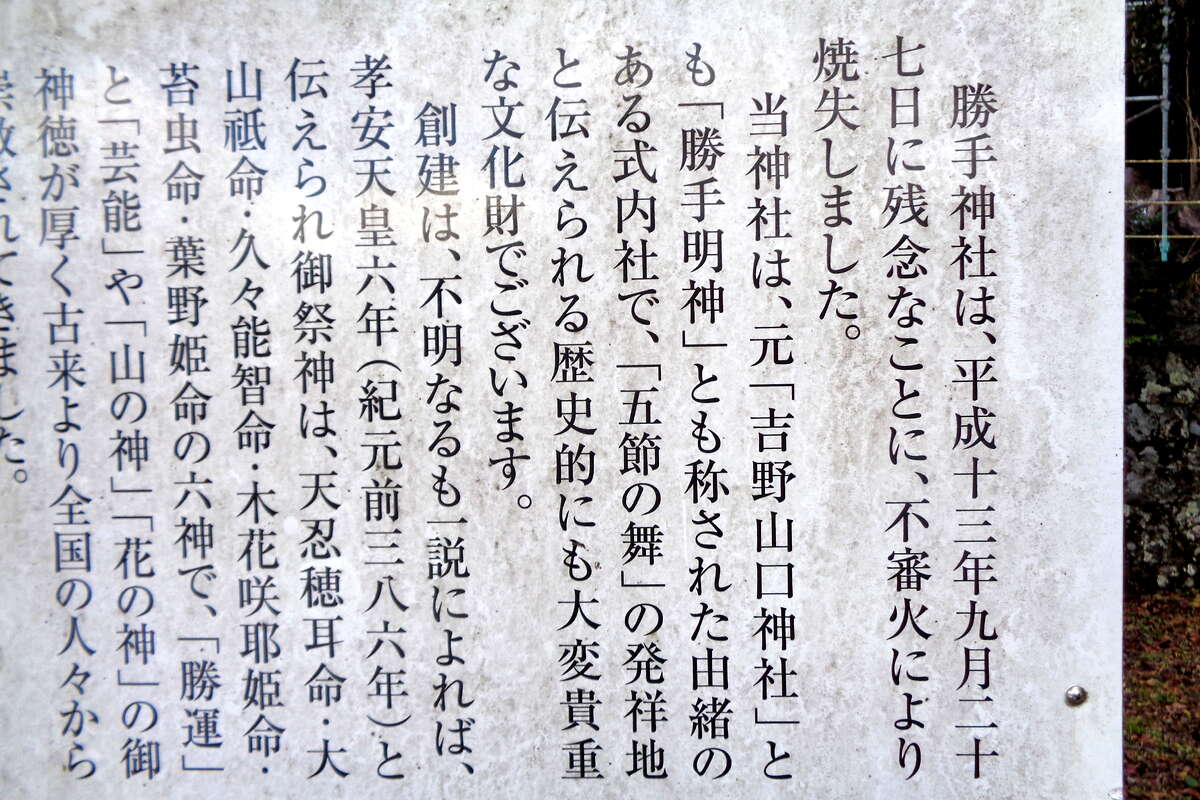 勝手神社は、平成十三年九月二十
七日に残念なことに、不審火により
焼失しました。
当神社は、元「吉野山口神社」と
も「勝手明神」とも称された由緒の
ある式内社で、「五節の舞」の発祥地
と伝えられる歴史的にも大変貴重
な文化財でございます。
創建は、不明なるも一説によれば、
孝安天皇六年（紀元前三八六年）と
伝えられ御祭神は、天忍穂耳命・大
山祗命・久々能智命・木花咲耶姫命・
苔虫命・葉野姫命の六神で、「勝運」
と「芸能」や「山の神」「花の神」の御
神徳が厚く古来より全国の人々から
崇敬されてきました。